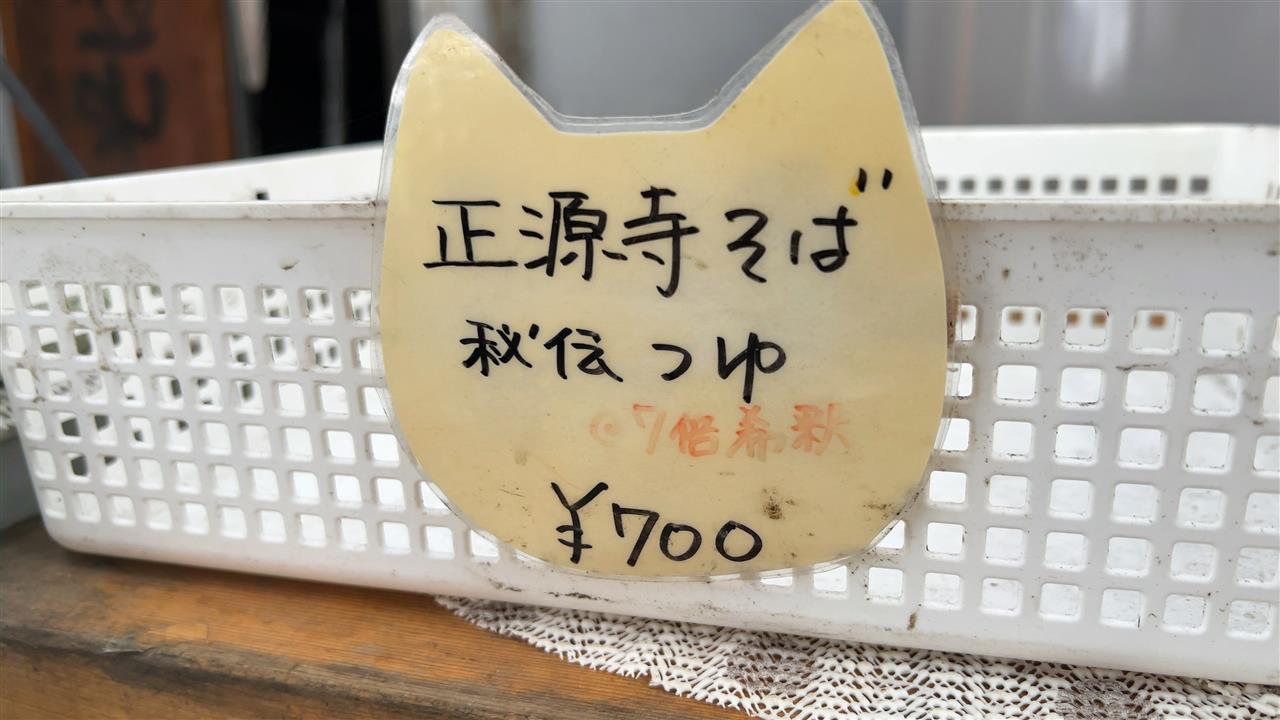 正源寺そば
秘伝つゆ
◎7倍希釈
¥700